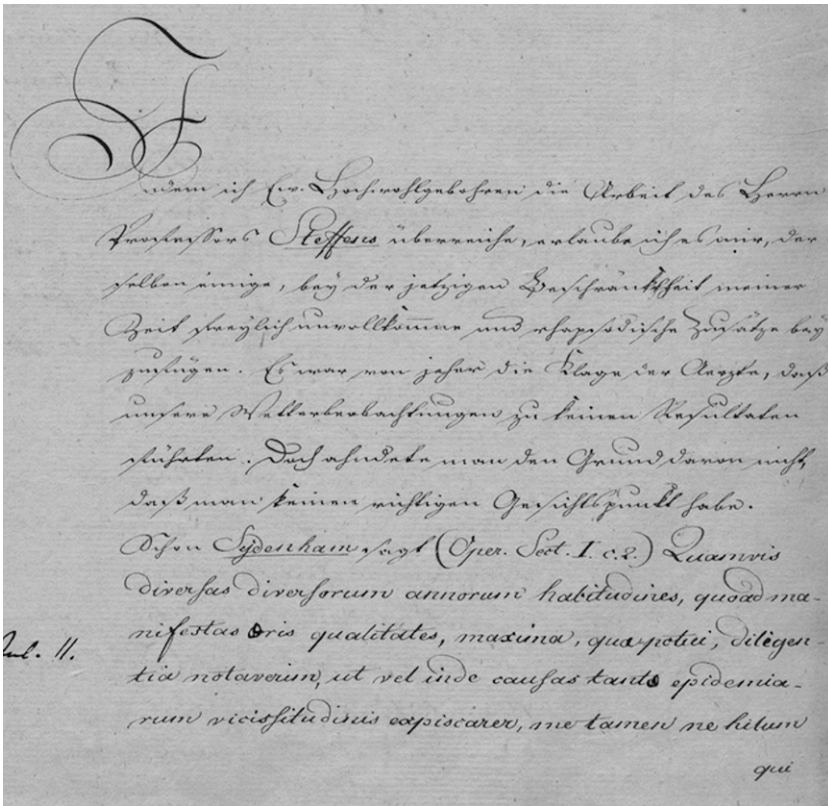 Indem ich Ew. Hochwohlgebohren die Arbeit des Herrn
Professors Steffens überreiche, erlaube ich es mir, der
selben einige, bey der jetzigen Beschränktheit meiner
Zeit freylich unvollkommne und rhapsodische Zusätze bey
zufügen. Es war von jeher die Klage der Aerzte, daß
unsere Wetterbeobachtungen zu keinen Resultaten
führten. Doch ahndete man den Grund davon nicht,
daß man keinen richtigen Gesichtspunkt habe.
Schon Sydenham sagt (Oper. Sect. I. c. 2.) Quamvis
diversas diversorum annorum habitudines, quoad ma-
nifestas aëris qualitates, maxima, qua potui, diligen-
tia notaverim, ut vel inde causas tantae epidemia-
rum vicissitudinis expiscarer, me tamen ne hilum
qui
II.